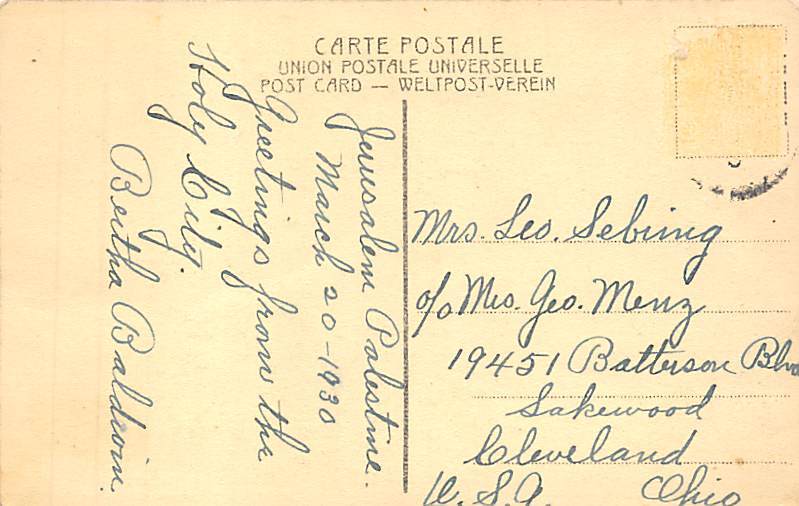 CARTE POSTALE
UNION POSTALE UNIVERSELLE
POST CARD — WELTPOST-VEREIN
Jerusalem Palestine.
March 20-1930
Greetings from the
Holy City.
Bertha Baldwin.
Mrs. Geo. Sebring
c/o Mrs. Geo. Menz
19451 Batterson Blvd
Lakewood
Cleveland
U.S.A. Ohio